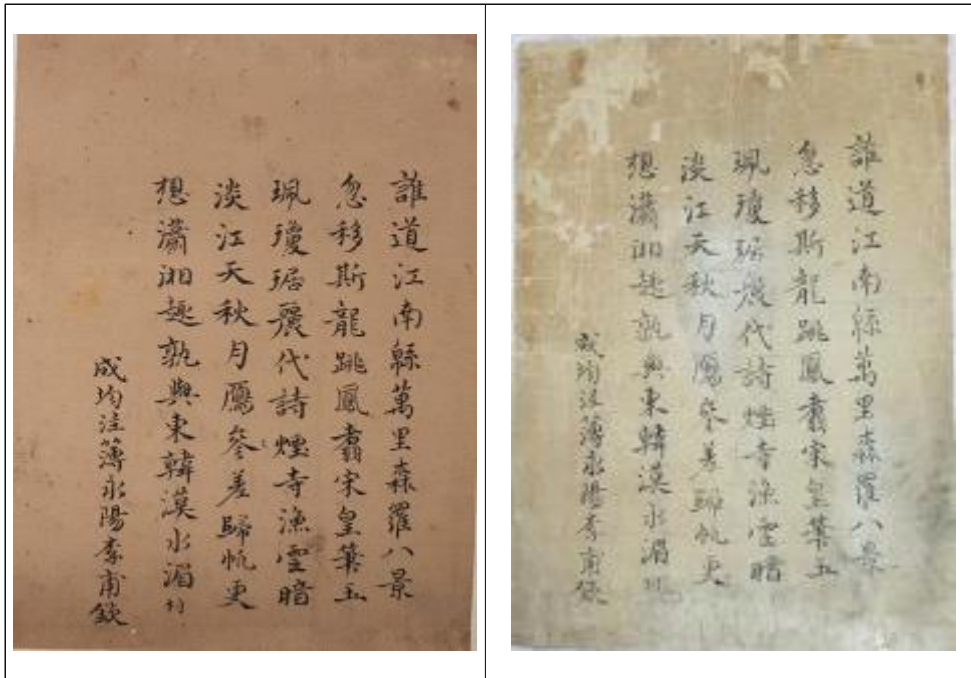 誰道江南縣萬里森羅八景
忽移斯龍跳鳳翥宋皇筆玉
珮瓊琚麗代詩煙寺漁雲暗
淡江天秋月鴈參差歸帆更
想瀟湘趣孰與東韓漢水湄村
成均注簿永陽李甫欽
誰道江南縣萬里森羅八景
忽移斯龍跳鳳翥宋皇筆玉
珮瓊琚麗代詩煙寺漁雲暗
淡江天秋月鴈參差歸帆更
想瀟湘趣孰與東韓漢水湄村
成均注簿永陽李甫欽